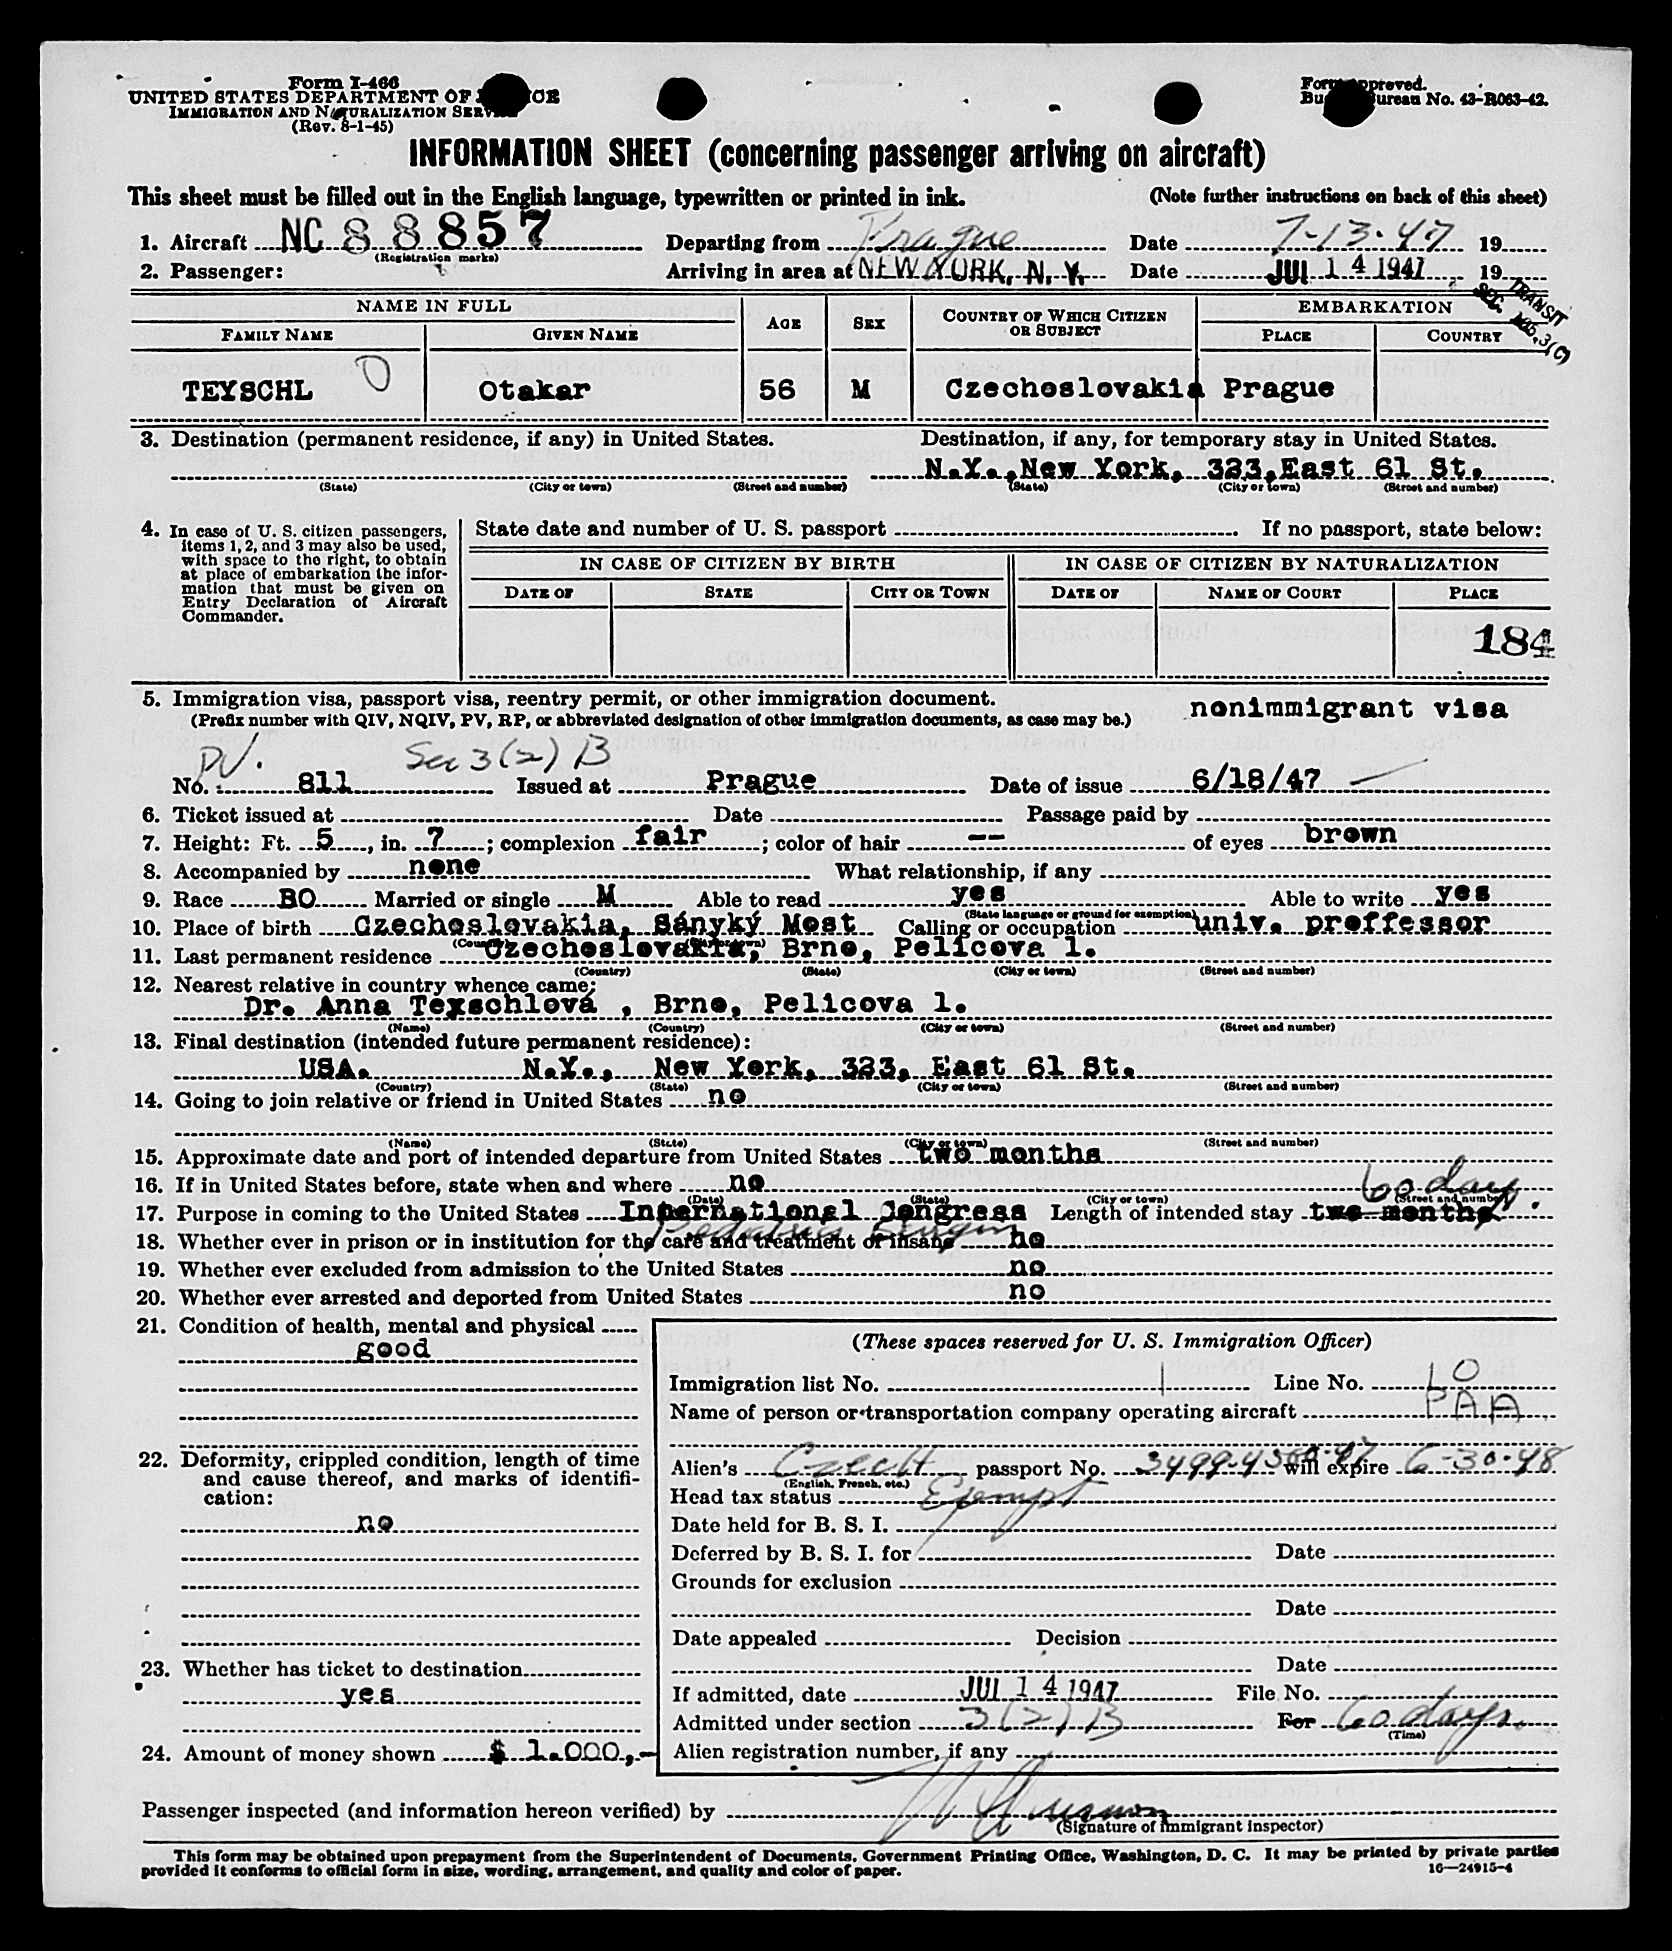 Form I-466
UNITED STATES DEPARTMENT OF
IMMIGRATION AND NATURALIZATION SERVICE
(Rev. 8-1-45)
Form approved.
Bureau No. 43-R063-42.
INFORMATION SHEET (concerning passenger arriving on aircraft)
This sheet must be filled out in the English language, typewritten or printed in ink. (Note further instructions on back of this sheet)
1. Aircraft NC 88857 Departing from Prague Date 7-13-47 19
(Registration marks)
2. Passenger: Arriving in area at NEW YORK, N. Y. Date JUL 14 1947 19
SEC. TRANSIT 3(C)
NAME IN FULL AGE SEX COUNTRY OF WHICH CITIZEN OR SUBJECT EMBARKATION
FAMILY NAME GIVEN NAME PLACE COUNTRY
TEYSCHL O Otakar 56 M Czechoslovakia Prague
3. Destination (permanent residence, if any) in United States. Destination, if any, for temporary stay in United States.
N.Y., New York, 323, East 61 St.
(State) (City or town) (Street and number) (State) (City or town) (Street and number)
4. In case of U. S. citizen passengers, items 1, 2, and 3 may also be used, with space to the right, to obtain at place of embarkation the information that must be given on Entry Declaration of Aircraft Commander.
State date and number of U. S. passport If no passport, state below:
IN CASE OF CITIZEN BY BIRTH IN CASE OF CITIZEN BY NATURALIZATION
DATE OF STATE CITY OR TOWN DATE OF NAME OF COURT PLACE
184
5. Immigration visa, passport visa, reentry permit, or other immigration document.
(Prefix number with QIV, NQIV, PV, RP, or abbreviated designation of other immigration documents, as case may be.) nonimmigrant visa
PV. Sec 3(2) B
No. 811 Issued at Prague Date of issue 6/18/47
6. Ticket issued at Date Passage paid by
7. Height: Ft. 5, in. 7; complexion fair; color of hair -- of eyes brown
8. Accompanied by none What relationship, if any
9. Race BO Married or single M Able to read yes Able to write yes
(State language or ground for exemption)
10. Place of birth Czechoslovakia, Sányký Most Calling or occupation univ. proffessor
(Country) (City or town)
11. Last permanent residence Czechoslovakia, Brno, Pelicova 1.
(Country) (State) (City or town) (Street and number)
12. Nearest relative in country whence came:
Dr. Anna Teyschlová, Brno, Pelicova 1.
(Name) (Country) (City or town) (Street and number)
13. Final destination (intended future permanent residence):
USA. N.Y., New York, 323, East 61 St.
(Country) (State) (City or town) (Street and number)
14. Going to join relative or friend in United States no
(Name) (State) (City or town) (Street and number)
15. Approximate date and port of intended departure from United States two months
16. If in United States before, state when and where no
(Date) (State) (City or town) (Street and number)
60 days.
17. Purpose in coming to the United States International Congress Length of intended stay two months
18. Whether ever in prison or in institution for the care and treatment of insane no
19. Whether ever excluded from admission to the United States no
20. Whether ever arrested and deported from United States no
21. Condition of health, mental and physical
good
22. Deformity, crippled condition, length of time and cause thereof, and marks of identification:
no
23. Whether has ticket to destination
yes
24. Amount of money shown $ 1.000,-
(These spaces reserved for U. S. Immigration Officer)
Immigration list No. 1 Line No. 10
Name of person or transportation company operating aircraft PAA
Alien's Czech passport No. will expire 6-30-48
(English, French, etc.)
Head tax status Exempt
Date held for B. S. I.
Deferred by B. S. I. for Date
Grounds for exclusion
Date
Date appealed Decision
Date
If admitted, date JUL 14 1947 File No.
Admitted under section 3(2) B For 60 days.
(Time)
Alien registration number, if any
Passenger inspected (and information hereon verified) by
(Signature of Immigrant Inspector)
This form may be obtained upon prepayment from the Superintendent of Documents, Government Printing Office, Washington, D. C. It may be printed by private parties
provided it conforms to official form in size, wording, arrangement, and quality and color of paper. 16—24915-4